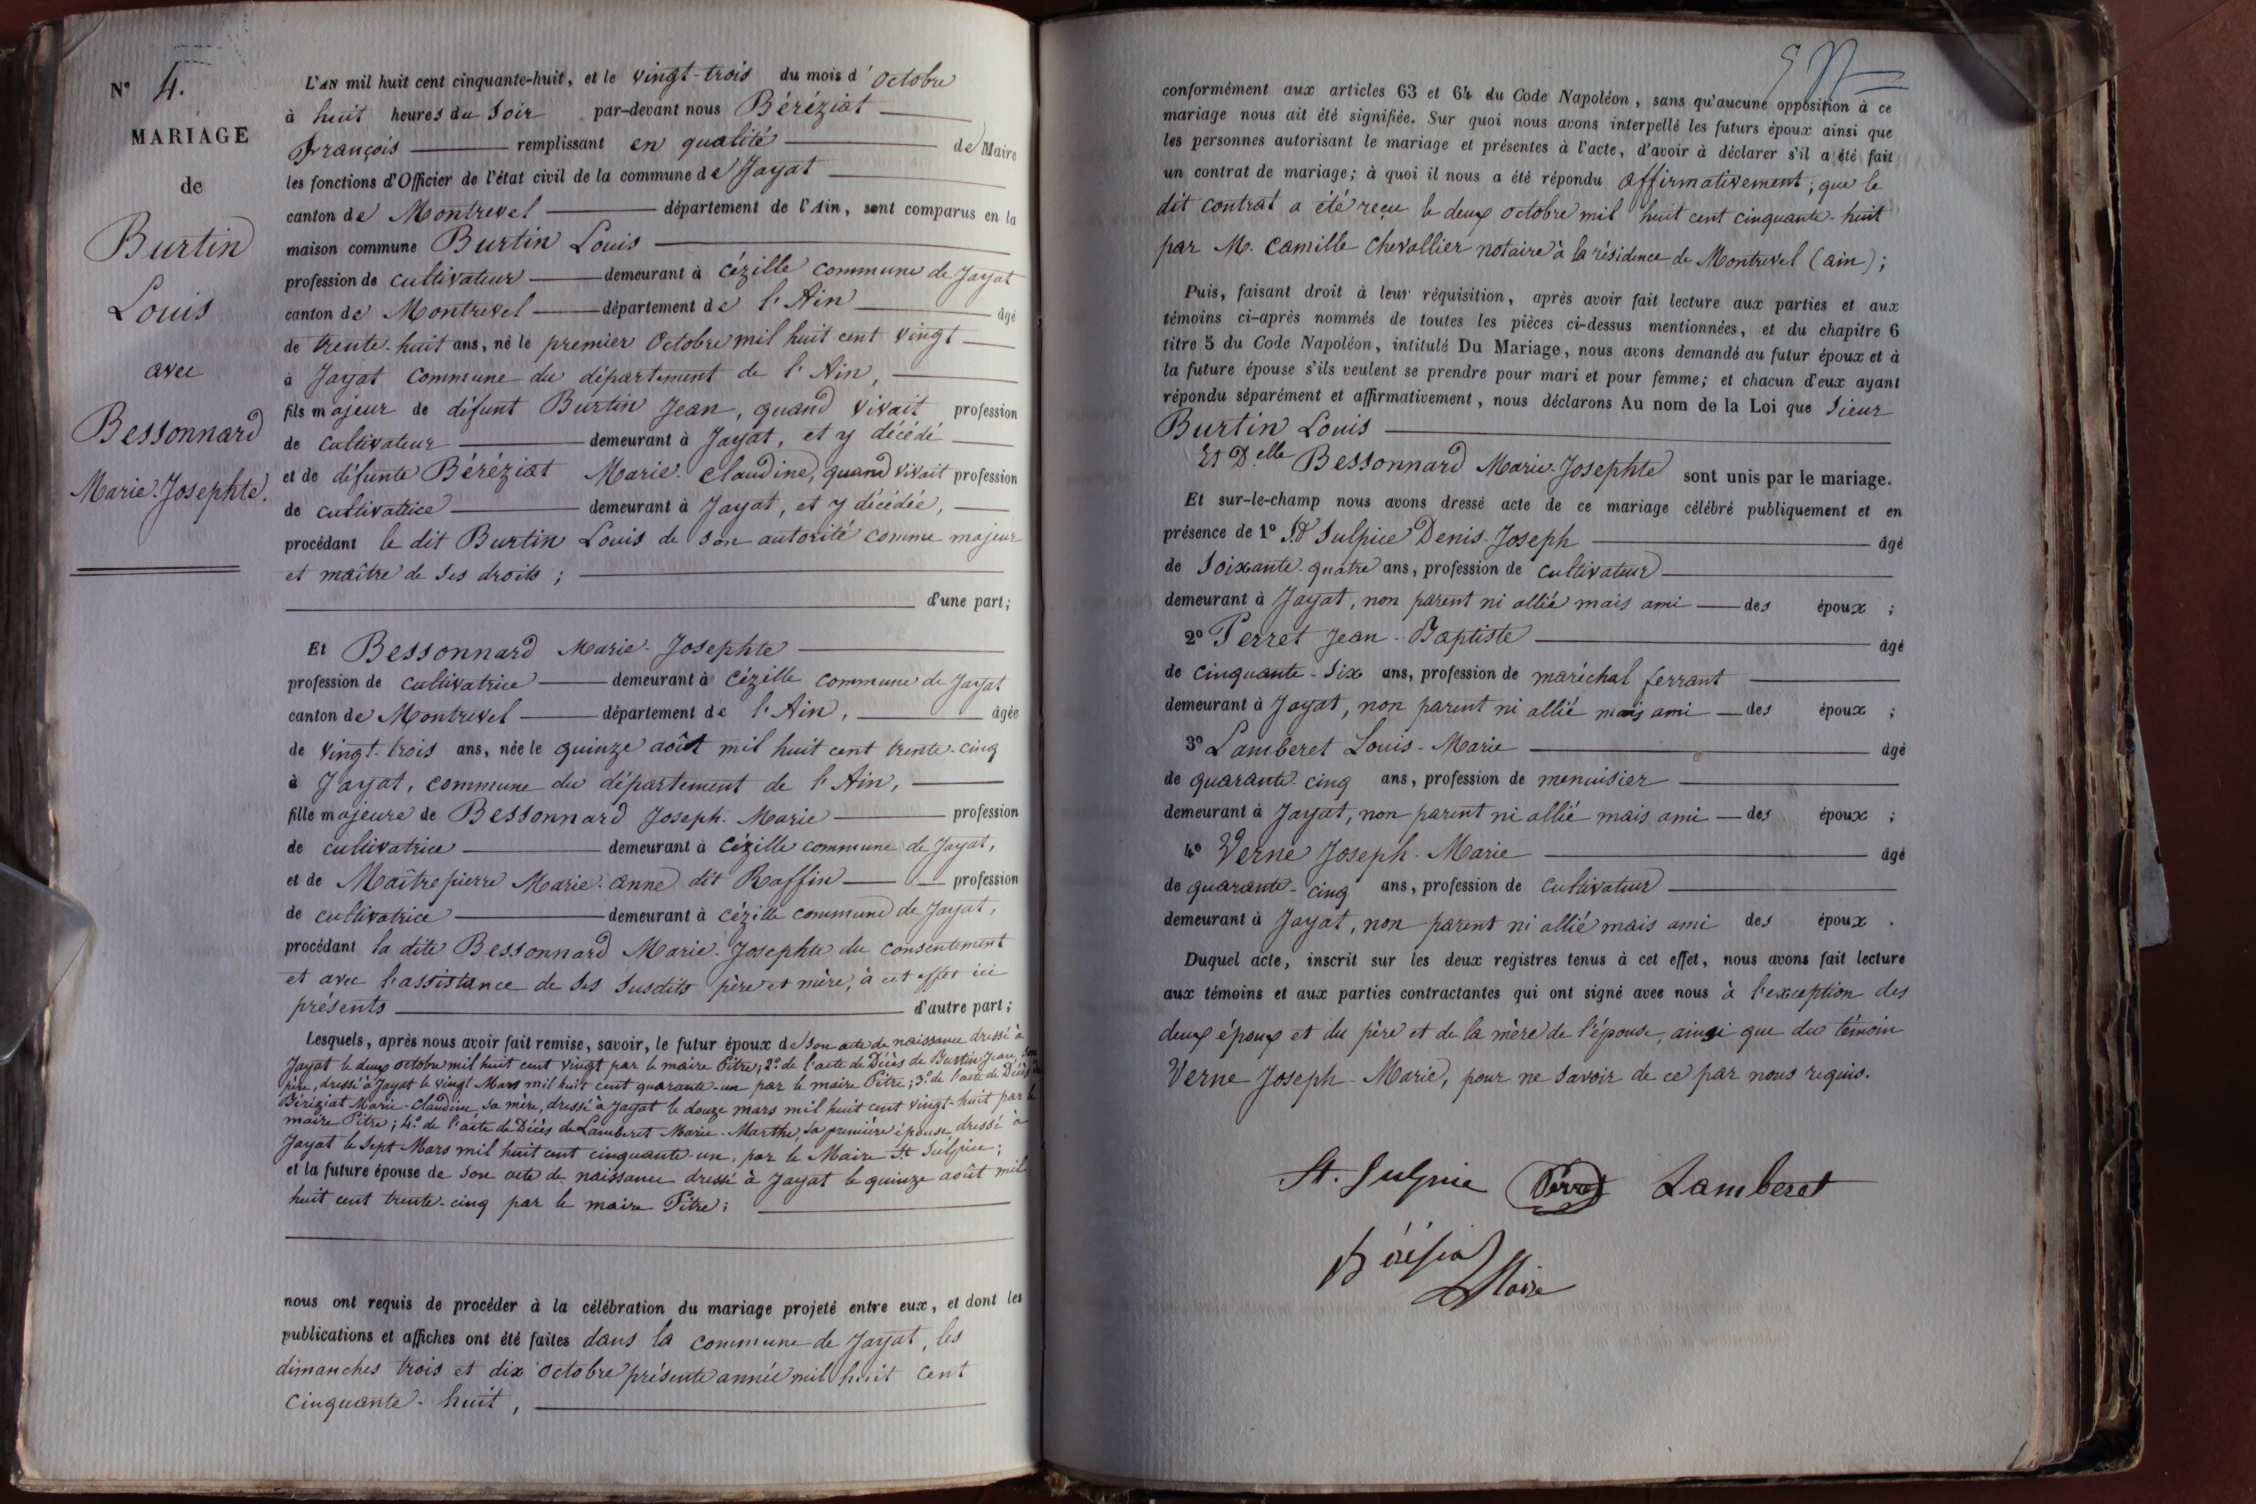 N° 4.
MARIAGE
de
Burtin
Louis
avec
Bessonnard
Marie-Josephte.
L'AN mil huit cent cinquante-huit, et le vingt-trois du mois d'octobre
à huit heures du soir par-devant nous Béréziat
François remplissant en qualité de Maire
les fonctions d'Officier de l'état civil de la commune de Jayat
canton de Montrevel département de l'Ain, sont comparus en la
maison commune Burtin Louis
profession de cultivateur demeurant à Cézille commune de Jayat
canton de Montrevel département de l'Ain âgé
de trente-huit ans, né le premier Octobre mil huit cent vingt
à Jayat commune du département de l'Ain,
fils majeur de défunt Burtin Jean, quand vivait profession
de cultivateur demeurant à Jayat, et y décédé
et de défunte Béréziat Marie-Claudine, quand vivait profession
de cultivatrice demeurant à Jayat, et y décédée,
procédant le dit Burtin Louis de son autorité comme majeur
et maître de ses droits ;
d'une part;
Et Bessonnard Marie-Josephte
profession de cultivatrice demeurant à Cézille commune de Jayat
canton de Montrevel département de l'Ain, âgée
de vingt-trois ans, née le quinze août mil huit cent trente-cinq
à Jayat, commune du département de l'Ain,
fille majeure de Bessonnard Joseph-Marie profession
de cultivatrice demeurant à Cézille commune de Jayat,
et de Maîtrepierre Marie-anne dit Raffin profession
de cultivatrice demeurant à Cézille commune de Jayat,
procédant la dite Bessonnard Marie-Josephte du consentement
et avec l'assistance de ses susdits père et mère, à cet effet ici
présents d'autre part;
Lesquels, après nous avoir fait remise, savoir, le futur époux de son acte de naissance dressé à
Jayat le deux octobre mil huit cent vingt par le maire Pitre; 2° de l'acte de Décès de Burtin Jean, son
père, dressé à Jayat le vingt Mars mil huit cent quarante-un par le maire Pitre; 3° de l'acte de Décès de
Béréziat Marie-Claudine sa mère, dressé à Jayat le douze mars mil huit cent vingt-huit par le
maire Pitre; 4° de l'acte de Décès de Lamberet Marie-Marthe, sa première épouse dressé à
Jayat le sept Mars mil huit cent cinquante-un, par le Maire St Sulpice;
et la future épouse de son acte de naissance dressé à Jayat le quinze août mil
huit cent trente-cinq par le maire Pitre;
nous ont requis de procéder à la célébration du mariage projeté entre eux, et dont les
publications et affiches ont été faites dans la commune de Jayat, les
dimanches trois et dix octobre présente année mil huit cent
cinquante-huit,
conformément aux articles 63 et 64 du Code Napoléon, sans qu'aucune opposition à ce
mariage nous ait été signifiée. Sur quoi nous avons interpellé les futurs époux ainsi que
les personnes autorisant le mariage et présentes à l'acte, d'avoir à déclarer s'il a été fait
un contrat de mariage; à quoi il nous a été répondu affirmativement; que le
dit contrat a été reçu le deux octobre mil huit cent cinquante-huit
par M. Camille Chevallier notaire à la résidence de Montrevel (ain);
Puis, faisant droit à leur réquisition, après avoir fait lecture aux parties et aux
témoins ci-après nommés de toutes les pièces ci-dessus mentionnées, et du chapitre 6
titre 5 du Code Napoléon, intitulé Du Mariage, nous avons demandé au futur époux et à
la future épouse s'ils veulent se prendre pour mari et pour femme; et chacun d'eux ayant
répondu séparément et affirmativement, nous déclarons Au nom de la Loi que sieur
Burtin Louis
Et Delle Bessonnard Marie-Josephte sont unis par le mariage.
Et sur-le-champ nous avons dressé acte de ce mariage célébré publiquement et en
présence de 1° St Sulpice Denis-Joseph âgé
de soixante-quatre ans, profession de cultivateur
demeurant à Jayat, non parent ni allié mais ami des époux ;
2° Perret Jean-Baptiste âgé
de cinquante-six ans, profession de maréchal ferrant
demeurant à Jayat, non parent ni allié mais ami des époux ;
3° Lamberet Louis-Marie âgé
de quarante-cinq ans, profession de menuisier
demeurant à Jayat, non parent ni allié mais ami des époux ;
4° Verne Joseph-Marie âgé
de quarante-cinq ans, profession de cultivateur
demeurant à Jayat, non parent ni allié mais ami des époux .
Duquel acte, inscrit sur les deux registres tenus à cet effet, nous avons fait lecture
aux témoins et aux parties contractantes qui ont signé avec nous à l'exception des
deux époux et du père et de la mère de l'épouse, ainsi que du témoin
Verne Joseph-Marie, pour ne savoir de ce par nous requis.
St. Sulpice Perret Lamberet
Bérésiat
Maire